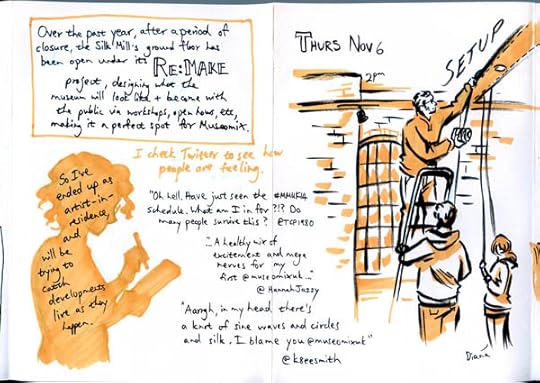 Over the past year, after a period of
closure, the Silk Mill's ground floor has
been open under its RE:MAKE
project, designing what the
museum will look like + become with
the public via workshops, open hours, etc,
making it a perfect spot for Museomix.
I check Twitter to see how
people are feeling.
So I've
ended up as
artist-in-
residence,
and
will be
trying to
catch
developments
live as they
happen.
"Oh hell. Have just seen the #MMUK14
schedule. What am I in for?!? Do
many people survive this? @TCP1980
"... A healthy mix of
excitement and mega
nerves for my
first @museomixuk..."
@HannahJazzy
"Aaargh, in my head there's
a knot of sine waves and circles
and silk. I blame you @museomixuk"
@k8eesmith
THURS NOV 6
2pm
SETUP
Diana